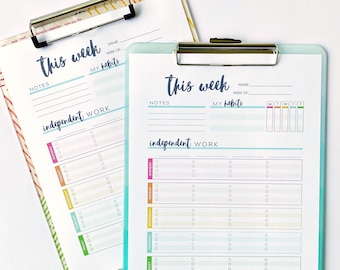 this week
NAME:
WEEK OF:
NOTES
MY habits
independent WORK
this week
NAME:
WEEK OF:
NOTES
MY habits
independent WORK